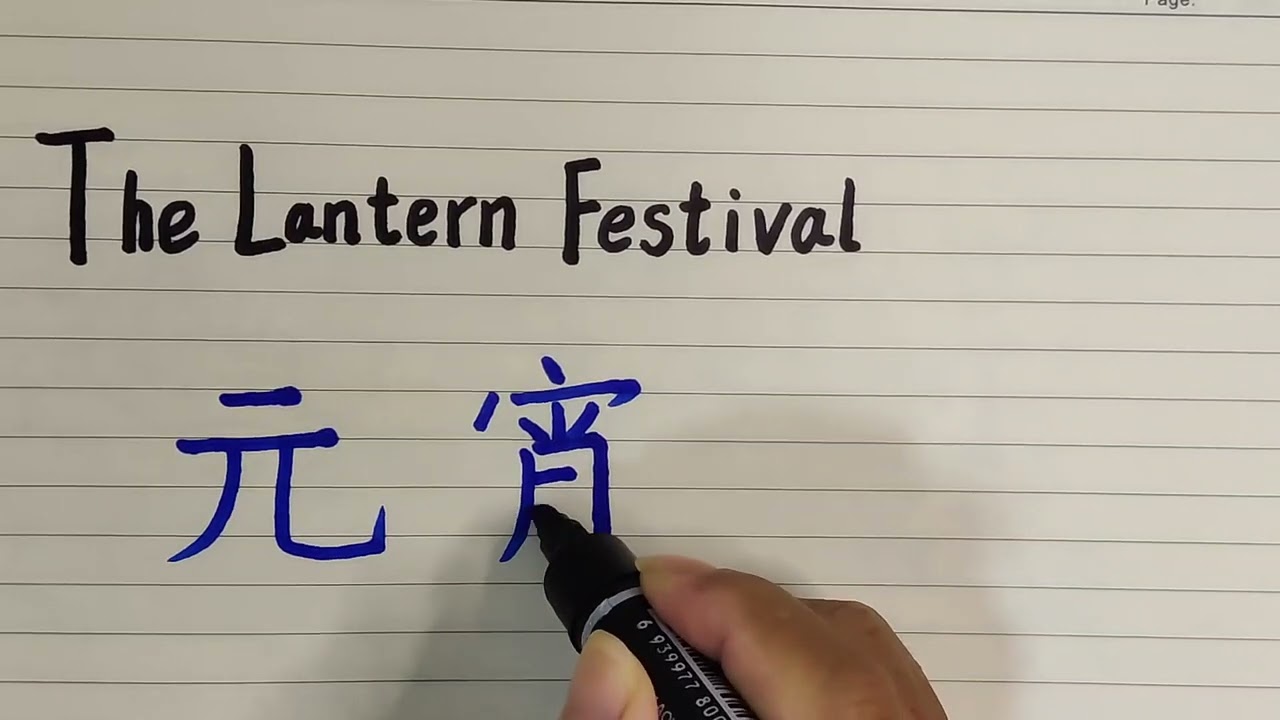 Page:
The Lantern Festival
元宵
6 939977 800